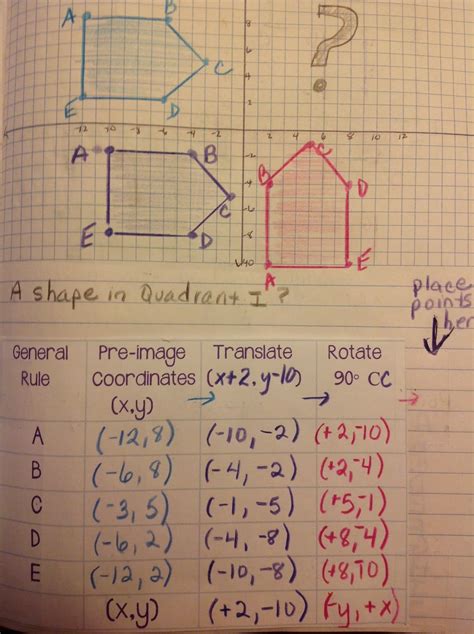 A B
8
?
6
C
4
E D
2
-12 -10 -8 -6 -4 -2 2 4 6 8 10 12
A B -2 C
B -4 D
C -6
E D -8
-10 A E
A shape in Quadrant I ?
place
points
her
General Pre-image Translate Rotate
Rule Coordinates (x+2, y-10) 90° CC
(x,y) → → →
A (-12,8) (-10,-2) (+2,-10)
B (-6,8) (-4,-2) (+2,-4)
C (-3,5) (-1,-5) (+5,-1)
D (-6,2) (-4,-8) (+8,-4)
E (-12,2) (-10,-8) (+8,-10)
(x,y) (+2,-10) (-y,+x)